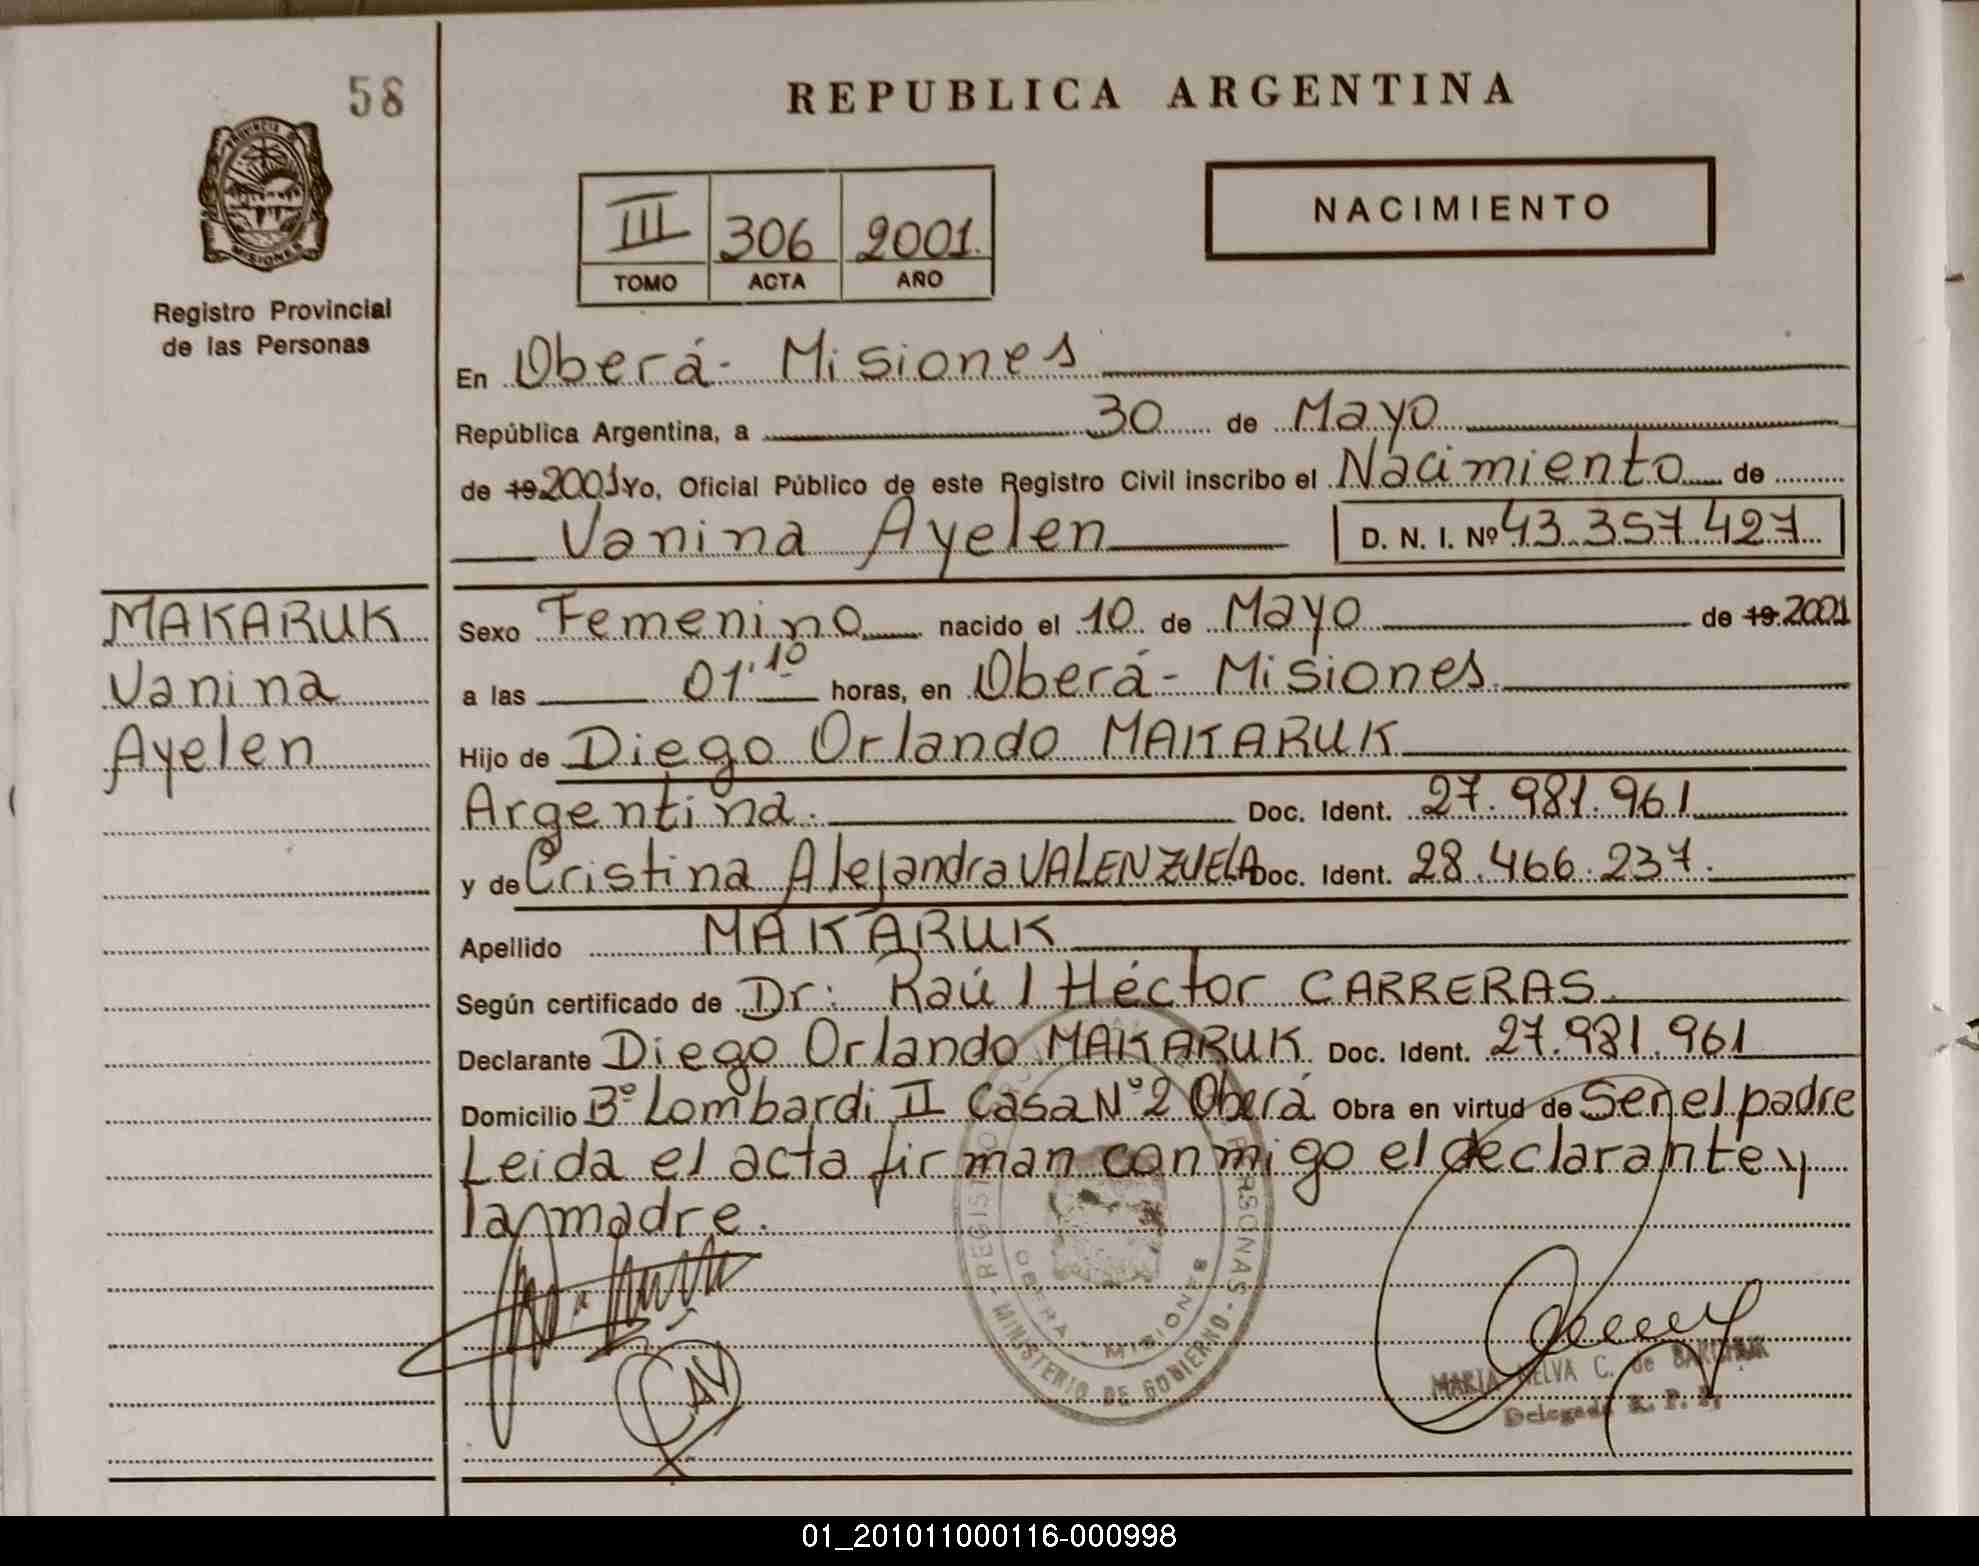 58
REPUBLICA ARGENTINA
PROVINCIA DE
MISIONES
Registro Provincial
de las Personas
NACIMIENTO
III 306 2001.
TOMO ACTA AÑO
En Oberá - Misiones
República Argentina, a 30 de Mayo
de 19 2001 Yo, Oficial Público de este Registro Civil inscribo el Nacimiento de
Vanina Ayelen D. N. I. Nº 43.357.427
MAKARUK
Vanina
Ayelen
Sexo Femenino nacido el 10 de Mayo de 19 2001
a las 01.10 horas, en Oberá - Misiones
Hijo de Diego Orlando MAKARUK
Argentina. Doc. Ident. 27.981.961
y de Cristina Alejandra VALENZUELA Doc. Ident. 28.466.237.
Apellido MAKARUK
Según certificado de Dr: Raúl Héctor CARRERAS
Declarante Diego Orlando MAKARUK Doc. Ident. 27.981.961
Domicilio Bº Lombardi II Casa Nº 2 Oberá Obra en virtud de Ser el padre
Leida el acta firman conmigo el declarante y
la madre.
REGISTRO PERSONAS - MINISTERIO DE GOBIERNO -
OBERA MISIONES
CAV
MARIA NELVA C. de
Delegada R. P. P.
01_201011000116-000998